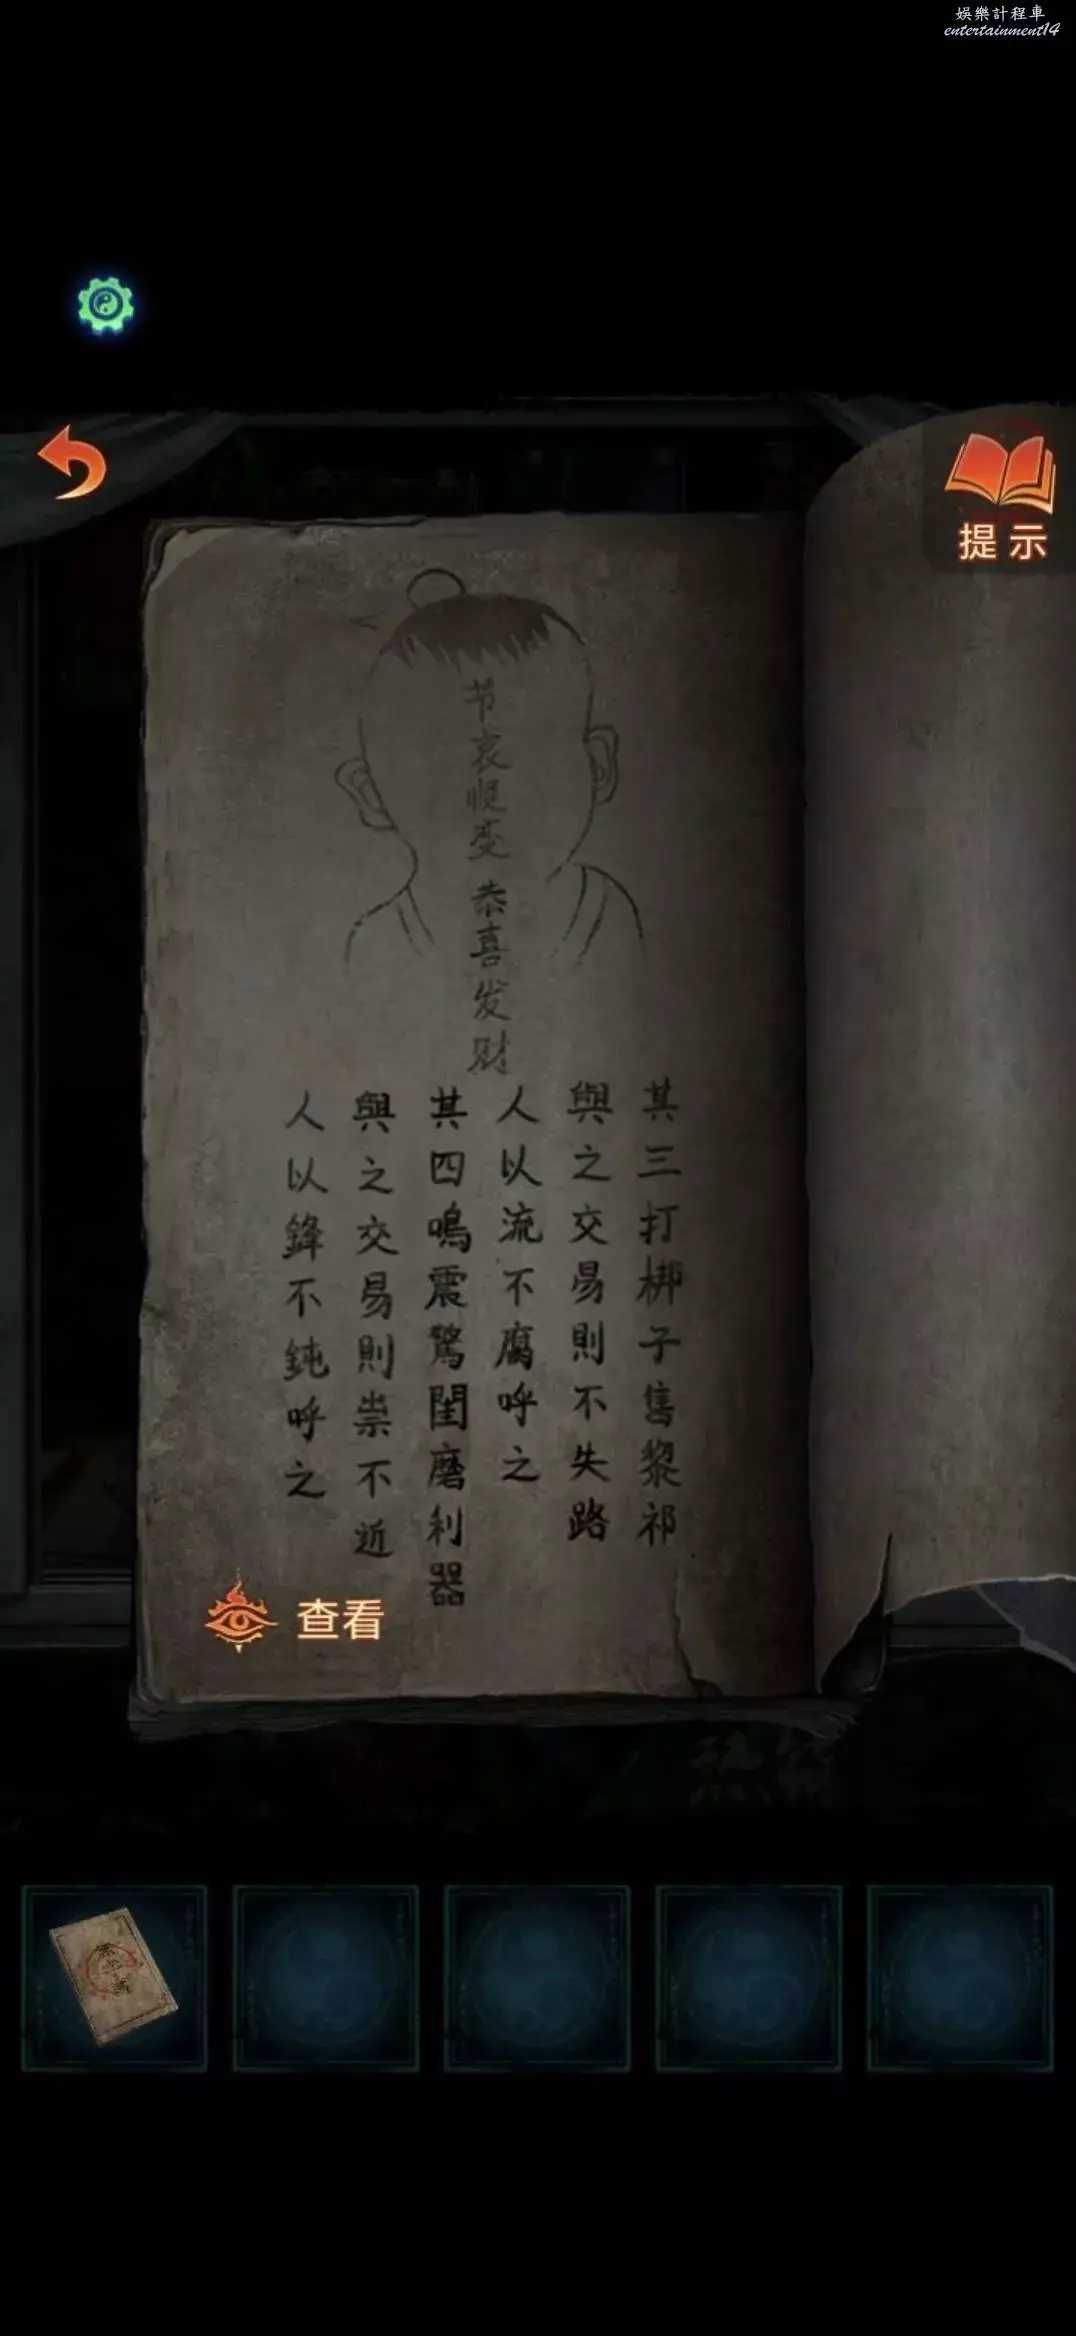 娛樂計程車
entertainment14
提示
节哀顺变
恭喜发财
其三打梆子售黎祁
與之交易則不失路
人以流不腐呼之
其四鳴震驚閨磨利器
與之交易則祟不近
人以鋒不鈍呼之
查看